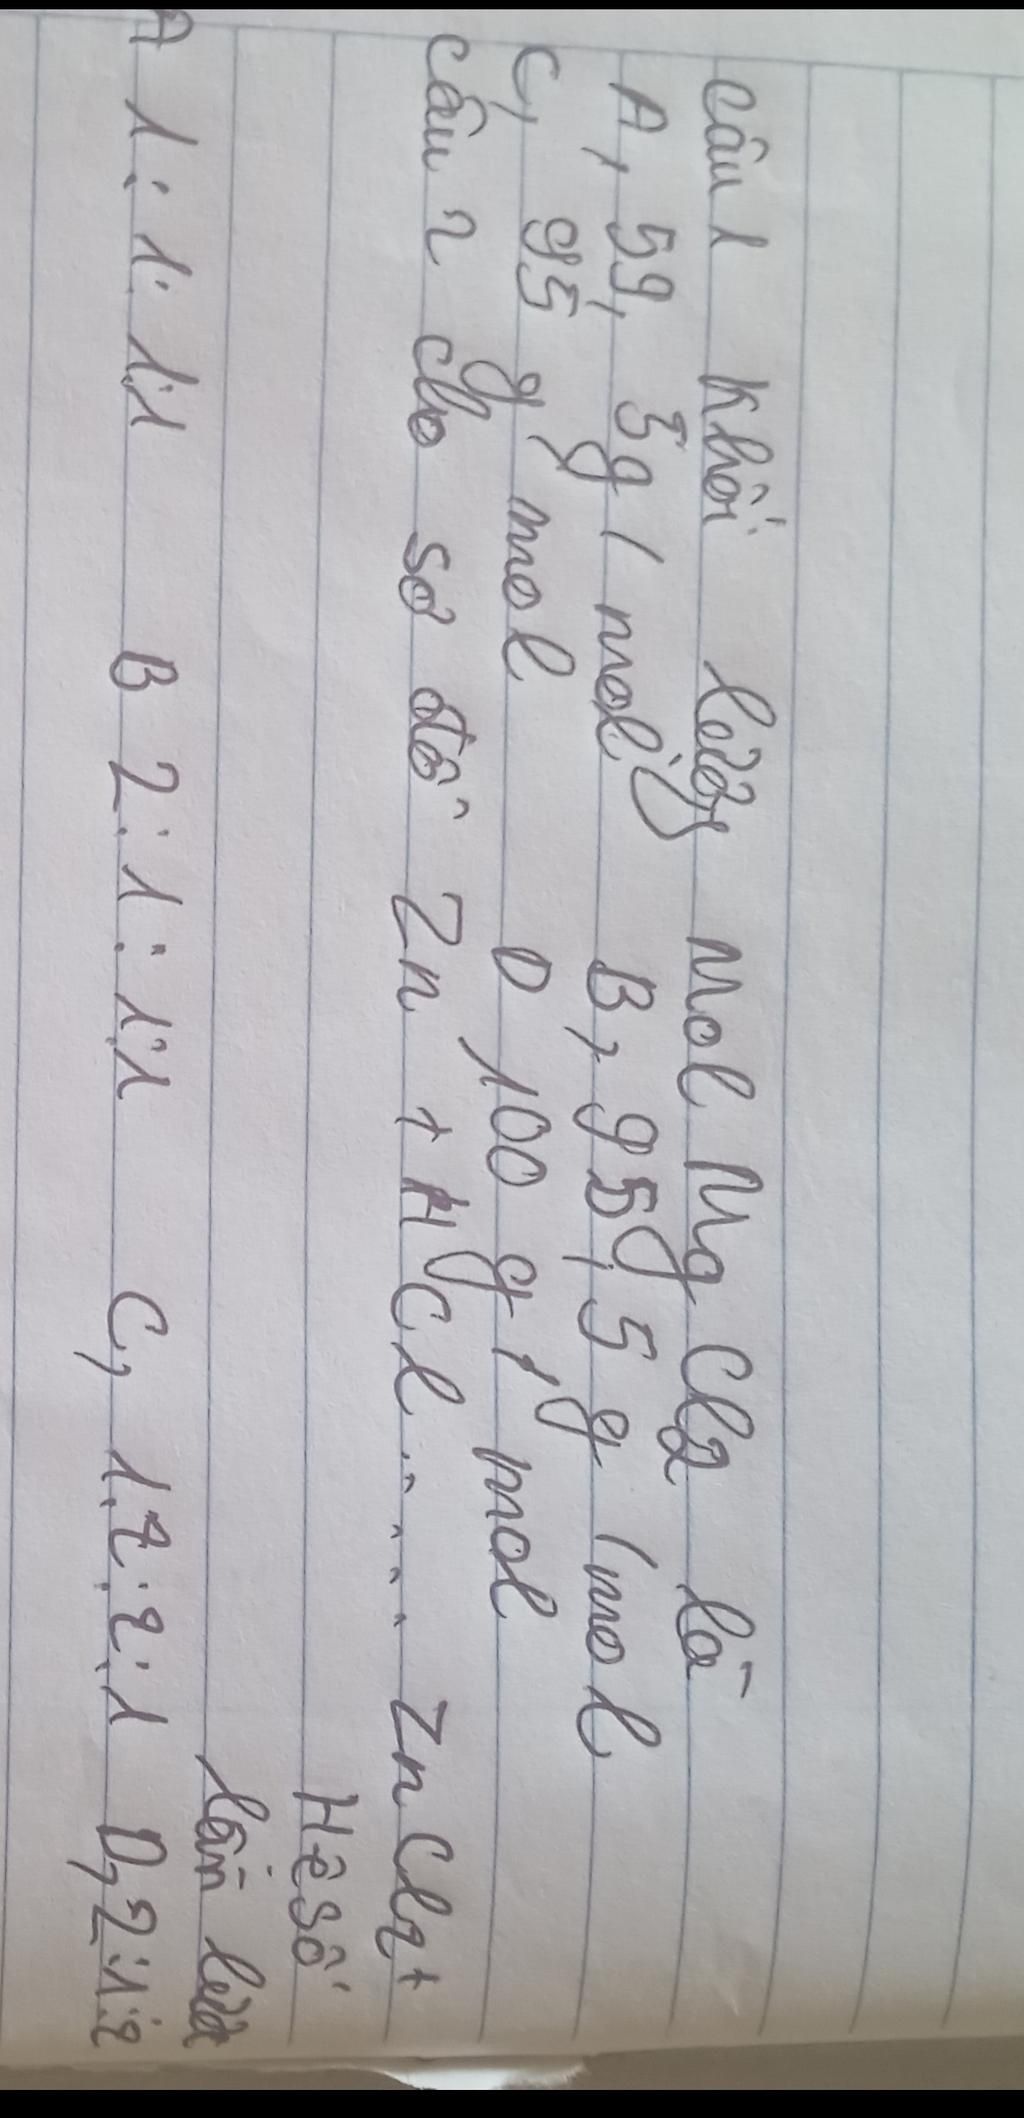 Câu 1 Khối lượng mol Mg Cl2 là
A, 59, 5g / mol B, 95,5 g /mol
C, 95 g mol D 100 g / mol
câu 2 cho sơ đồ Zn + HCl .... Zn Cl2 +
Hệ số
lần lượt
A 1:1:1:1 B 2:1:1:1 C, 1:2:2:1 D, 2:1:2